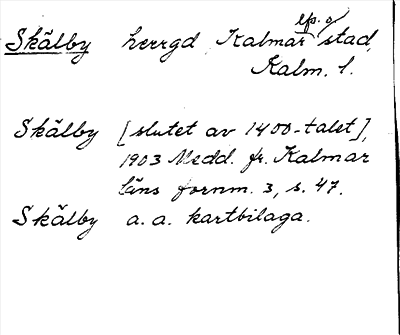 Skälby herrgd Kalmar lfs. o. stad,
Kalm. l.
Skälby [slutet av 1400-talet],
1903 Medd. fr. Kalmar
läns fornm. 3, s. 47.
Skälby a. a. kartbilaga.